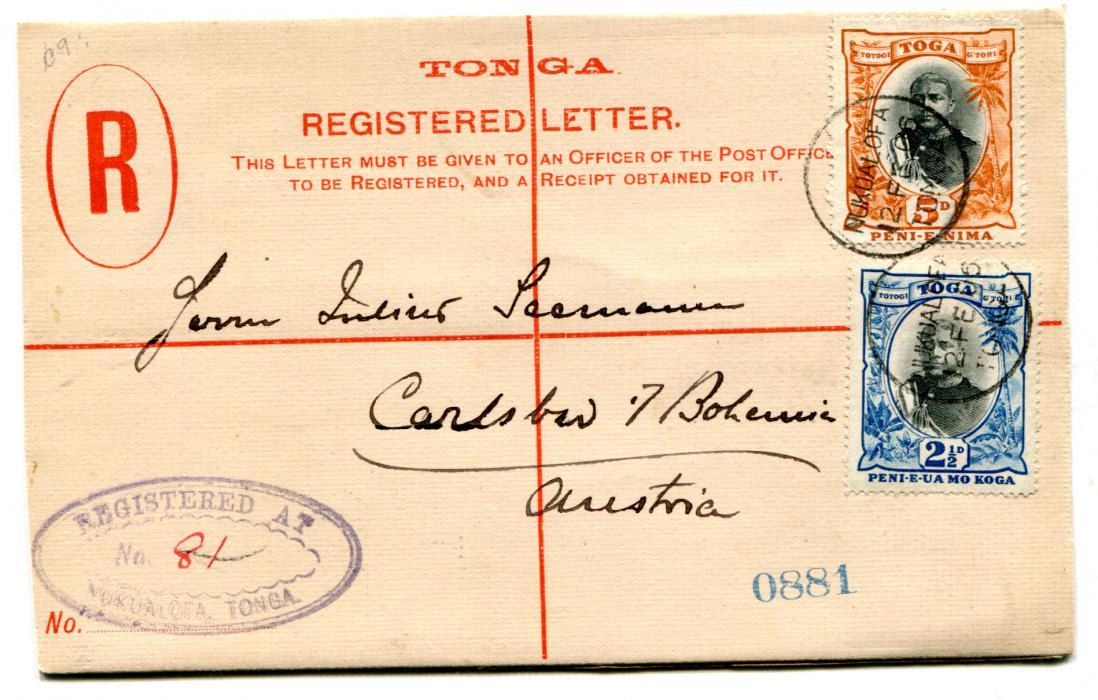 R
TONGA
REGISTERED LETTER.
THIS LETTER MUST BE GIVEN TO AN OFFICER OF THE POST OFFICE
TO BE REGISTERED, AND A RECEIPT OBTAINED FOR IT.
TOTOGI TOGA G TOHI
5D
PENI-E-NIMA
NUKUALOFA
12 FE 06
TOTOGI TOGA G TOHI
2½D
PENI-E-UA MO KOGA
NUKUALOFA
12 FE 06
Herrn Julius Seemann
Bohemia
Austria
REGISTERED AT
No. 81
NUKUALOFA, TONGA.
No.
0881